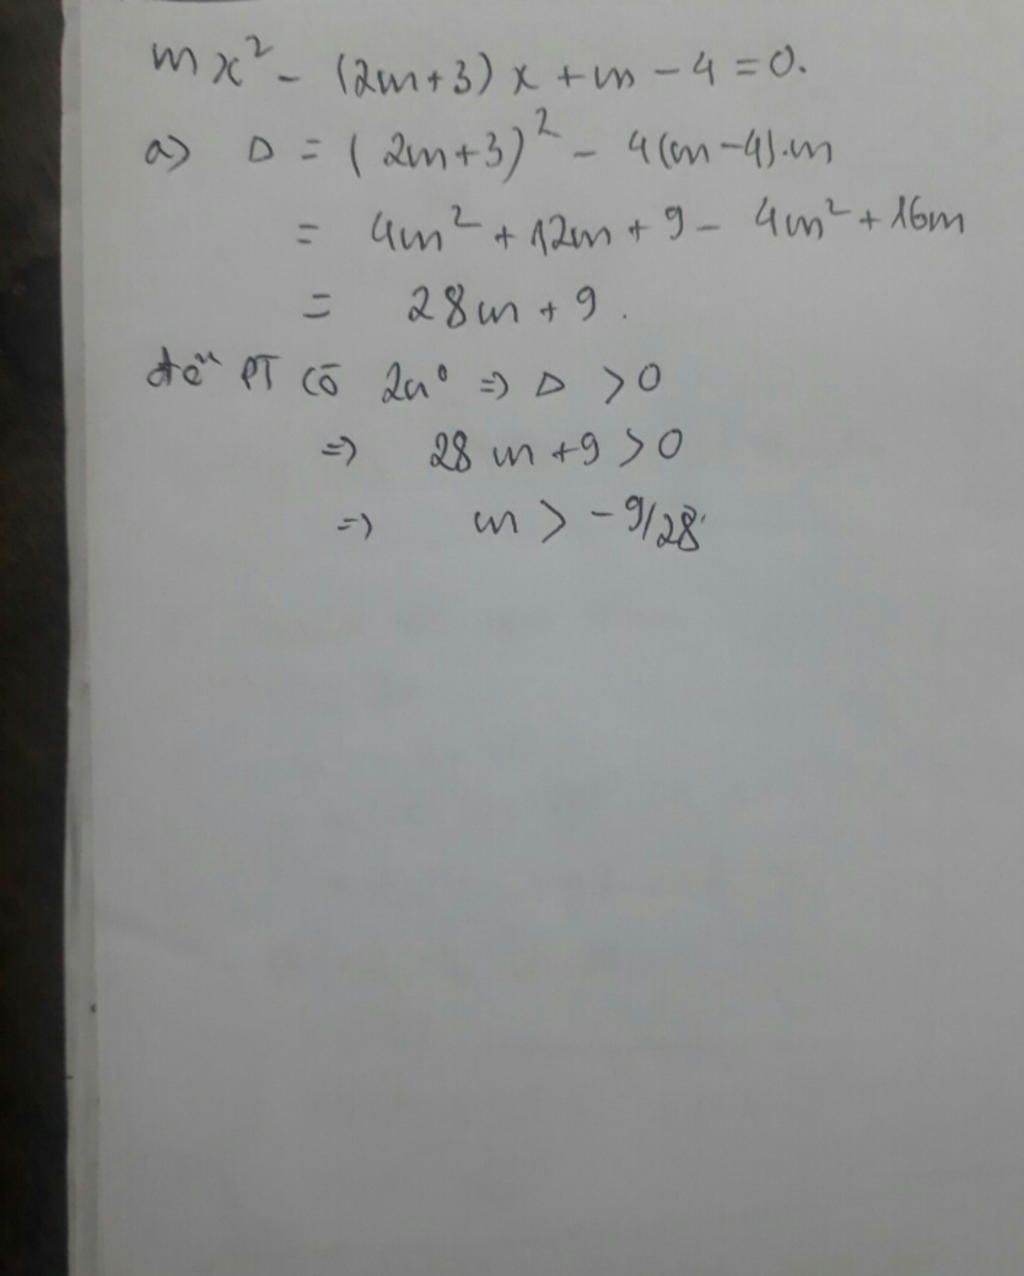 mx² - (2m+3)x + m - 4 = 0.
a) Δ = (2m+3)² - 4(m-4).m
= 4m² + 12m + 9 - 4m² + 16m
= 28m + 9.
để PT có 2n⁰ => Δ > 0
=> 28m + 9 > 0
=> m > -9/28.